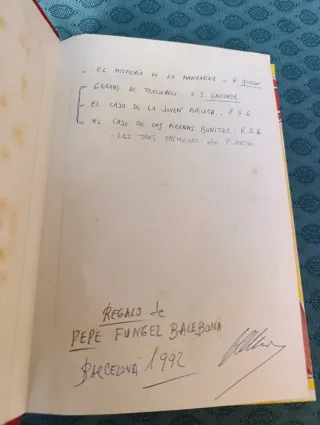 - EL MISTERIO DE LA MANDARINA - E. QUEEN
GARRAS DE TERCIOPELO. E.S. GARDNER.
- EL CASO DE LA JOVEN ARISCA. E.S.G.
EL CASO DE LAS PIERNAS BONITAS. E.S.G
- LAS TRES PRIMERAS de P. MASON
REGALO de
PEPE FUNGEL BALEBONA
BARCELONA 1992